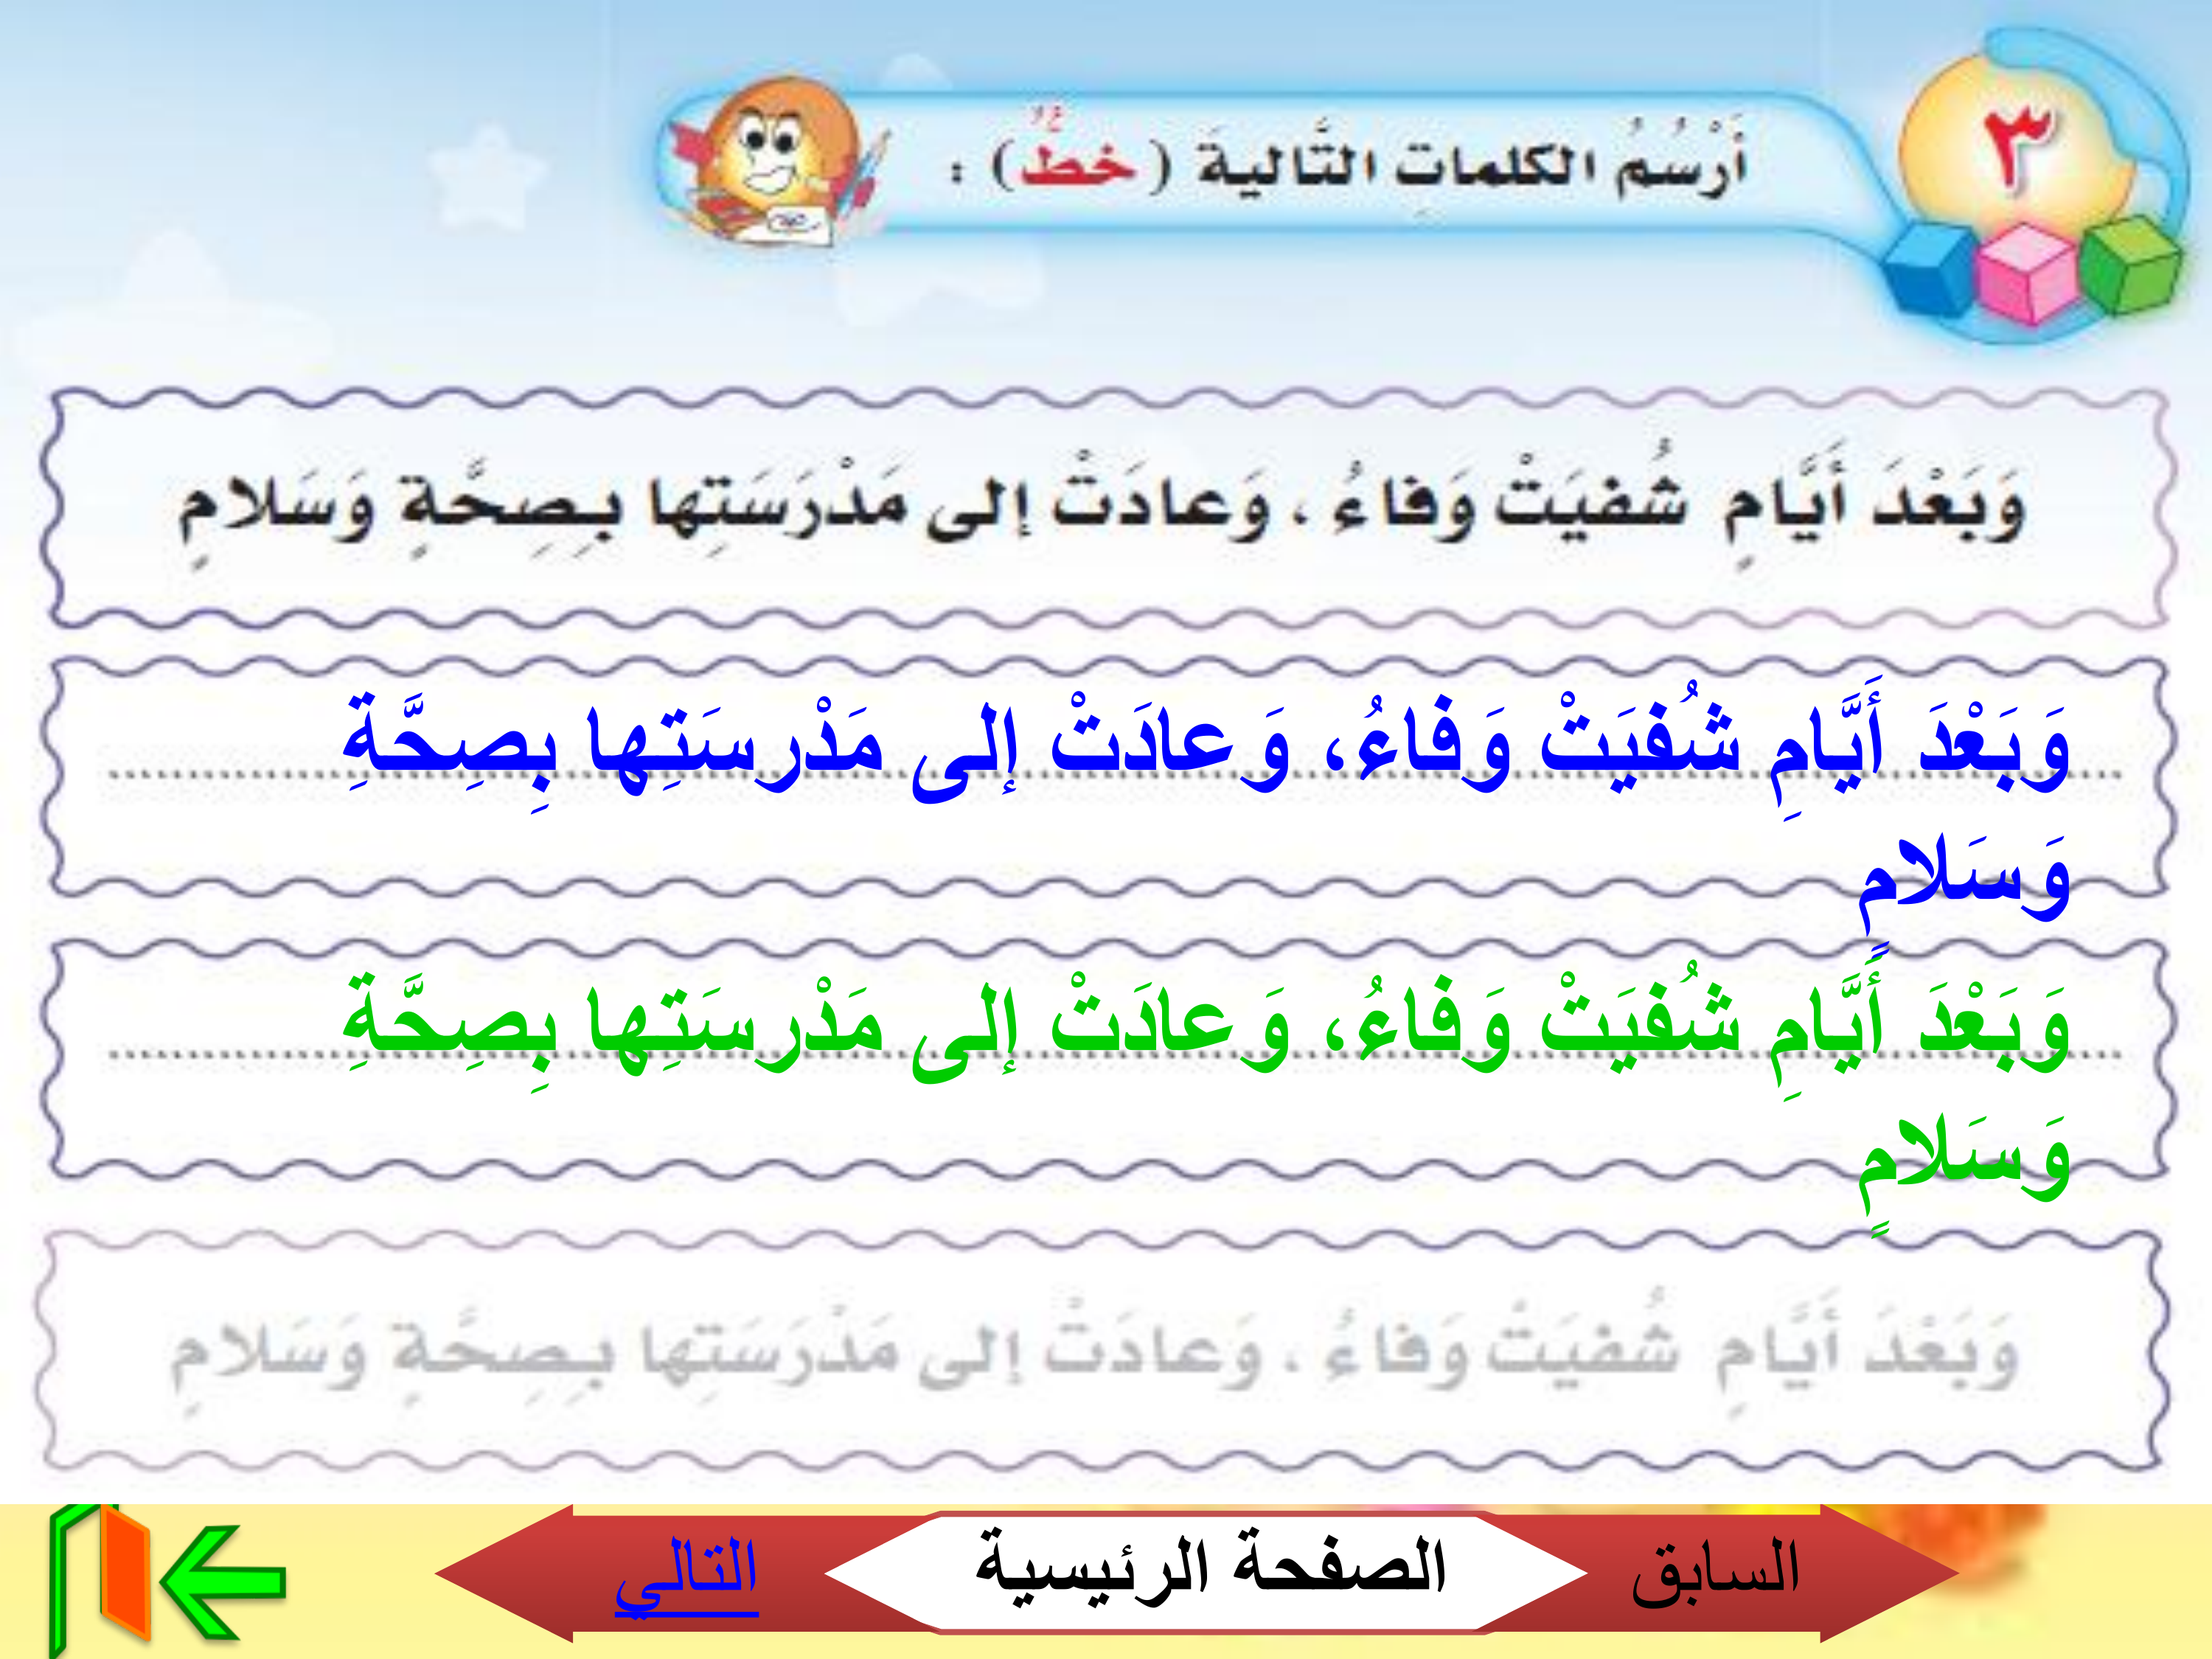 ٣
أَرْسُمُ الكلماتِ التَّاليةَ (خطٌّ) :
وَبَعْدَ أَيَّامٍ شُفيَتْ وَفاءُ ، وَعادَتْ إلى مَدْرَسَتِها بِصِحَّةٍ وَسَلامٍ
وَبَعْدَ أَيَّامِ شُفيَتْ وَفاءُ، وَعادَتْ إلى مَدْرسَتِها بِصِحَّةِ
وَسَلامٍ
وَبَعْدَ أَيَّامِ شُفيَتْ وَفاءُ، وَعادَتْ إلى مَدْرسَتِها بِصِحَّةِ
وَسَلامٍ
وَبَعْدَ أَيَّامٍ شُفيَتْ وَفاءُ ، وَعادَتْ إلى مَدْرَسَتِها بِصِحَّةٍ وَسَلامٍ
السابق
الصفحة الرئيسية
التالي